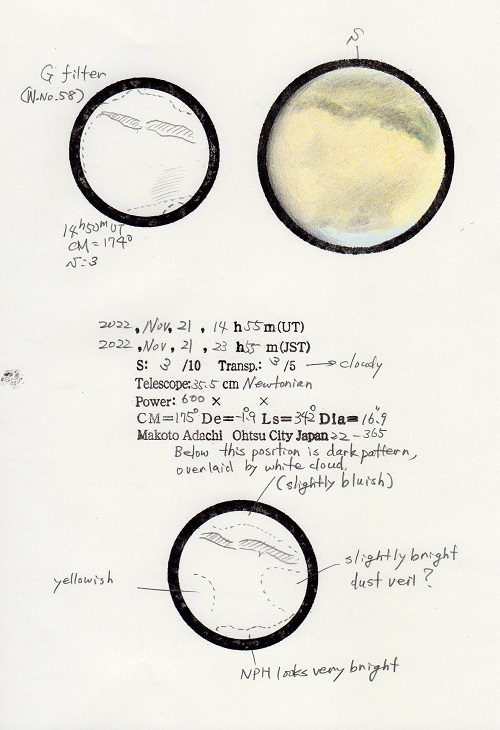 S
G filter
(W.No.58)
14h50m UT
CM=174°
S=3
2022, Nov, 21, 14 h 55 m (UT)
2022, Nov, 21, 23 h 55 m (JST)
S: 3 /10 Transp.: 3 /5 → cloudy
Telescope: 35.5 cm Newtonian
Power: 600 × ×
CM=175° De=-1.9° Ls=342° Dia=16".9
Makoto Adachi Ohtsu City Japan 22-365
Below this position is dark pattern,
overlaid by white cloud.
(slightly bluish)
slightly bright
dust veil?
yellowish
NPH looks very bright